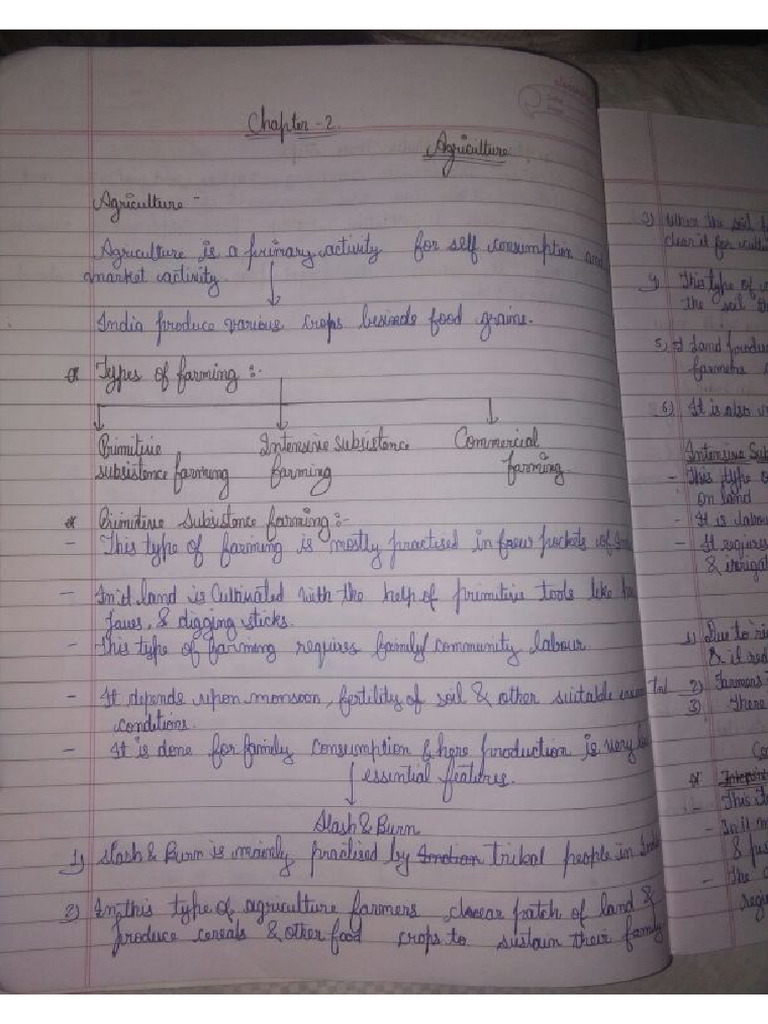 Chapter - 2.
Agriculture
Agriculture -
Agriculture is a primary activity for self consumption and
market activity.
India produce various crops besinede food grains.
* Types of farming :-
Primitive subsistence farming
Intensive subsistence farming
Commercial farming
* Primitive Subsistence farming :-
- This type of farming is mostly practised in few pockets of
- In it land is Cultivated with the help of primitive tools like
& digging sticks.
- This type of farming requires family/community labour.
- It depends upon monsoon, fertility of soil & other suitable
conditions.
- It is done for family consumption & here production is very
essential features.
Slash & Burn
1) Slash & Burn is mainly practised by Indian tribal people in
2) In this type of agriculture farmers clear patch of land &
produce cereals & other food crops to sustain their family
3) When the soil
clear it for
4) This type of
the soil
5) Land
farmers
6) It is also
Intensive Sub
- This type
on land
- It is
- It requires
&
1) Due to
& it
2) Farmers
3) There
- This
- In it
&
- The